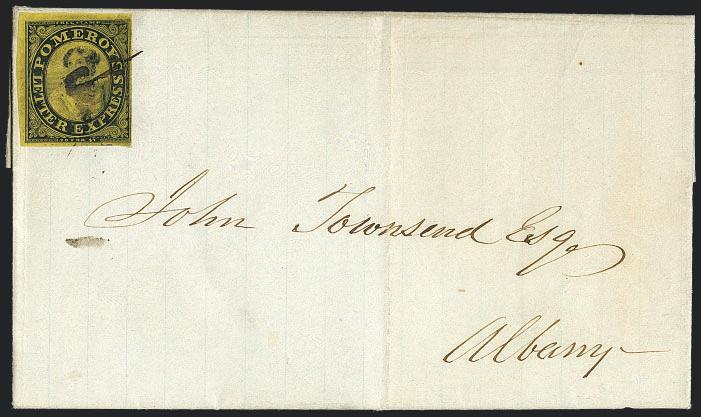 FREE STAMP
POMEROY'S
LETTER EXPRESS.
20 FOR $1
John Townsend Esq.
Albany